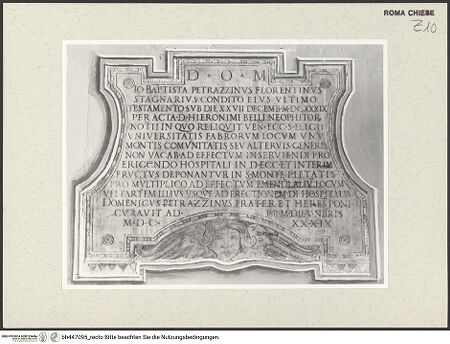 ROMA CHIESE
Z10
D · O · M
IO BAPTISTA PETRAZZINVS FLORENTINVS
STAGNARIVS CONDITO EIVS VLTIMO
TESTAMENTO SVB DIE XXVII DECEMB MDCXXXIX
PER ACTA D HIERONIMI BELLI NEOPHITOR
NOTII IN QVO RELIQVIT VEN ECC S ELIGII
VNIVERSITATIS FABRORVM LOCVM VNV
MONTIS COMVNITATIS SEV ALTERVIS GENERIS
NON VACAB AD EFFECTVM INSERVIENDI PRO
ERIGENDO HOSPITALI IN D ECC ET INTERIM
FRVCTVS DEPONANTVR IN S MONTE PIETATIS
PRO MVLTIPLICO AD EFFECTVM EMENDI ALIV LOCVM
VEL PARTEM ILLIVS VSQVE AD ERECTIONEM DI HOSPITALIS
DOMENICVS PETRAZZINVS FRATER ET HERES PONI
CVRAVIT AD
M·D·C· XXXIX
bh447095_recto Bitte beachten Sie die Nutzungsbedingungen.